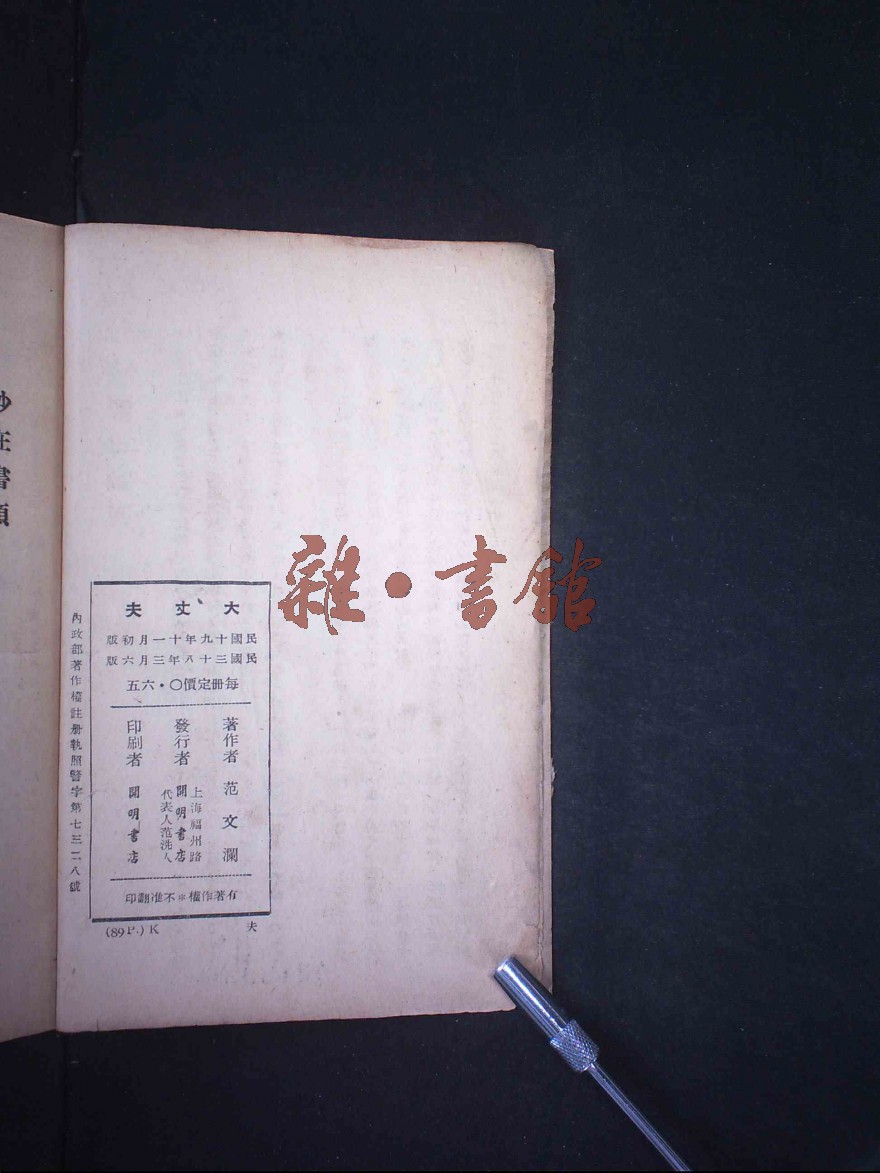 大丈夫
民國十九年十一月初版
民國三十八年三月六版
每冊定價〇·六五
著作者 范文瀾
發行者 上海福州路 開明書店 代表人范洗人
印刷者 開明書店
有著作權※不准翻印
內政部著作權註册執照警字第七三二八號
(89P.) K
夫
在書
雜·書館